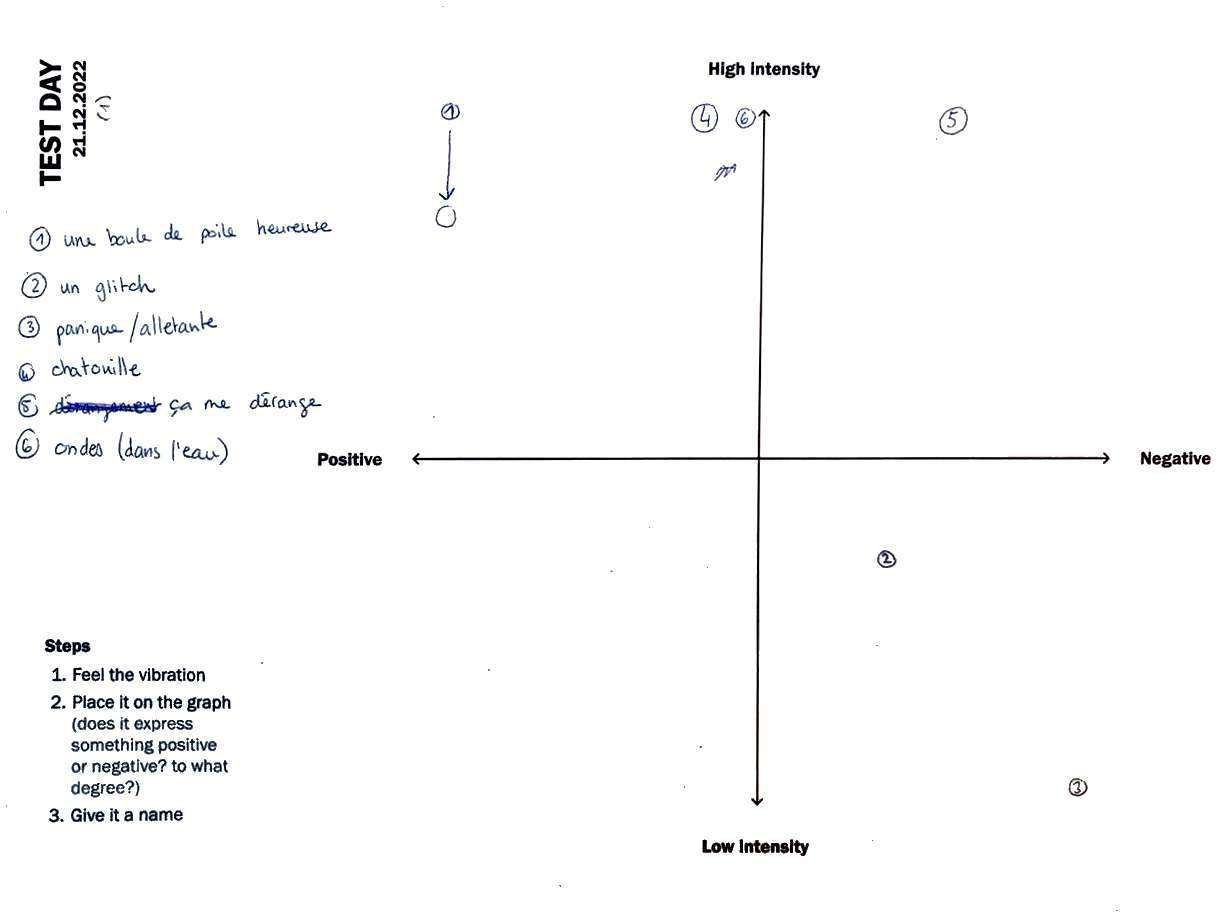 TEST DAY
21.12.2022
(1)
High intensity
1
4 6 5
1 une boule de poile heureuse
2 un glitch
3 panique/alletante
4 chatouille
5 dérangement ça me dérange
6 ondes (dans l'eau)
Positive
Negative
2
3
Low intensity
Steps
1. Feel the vibration
2. Place it on the graph
(does it express
something positive
or negative? to what
degree?)
3. Give it a name